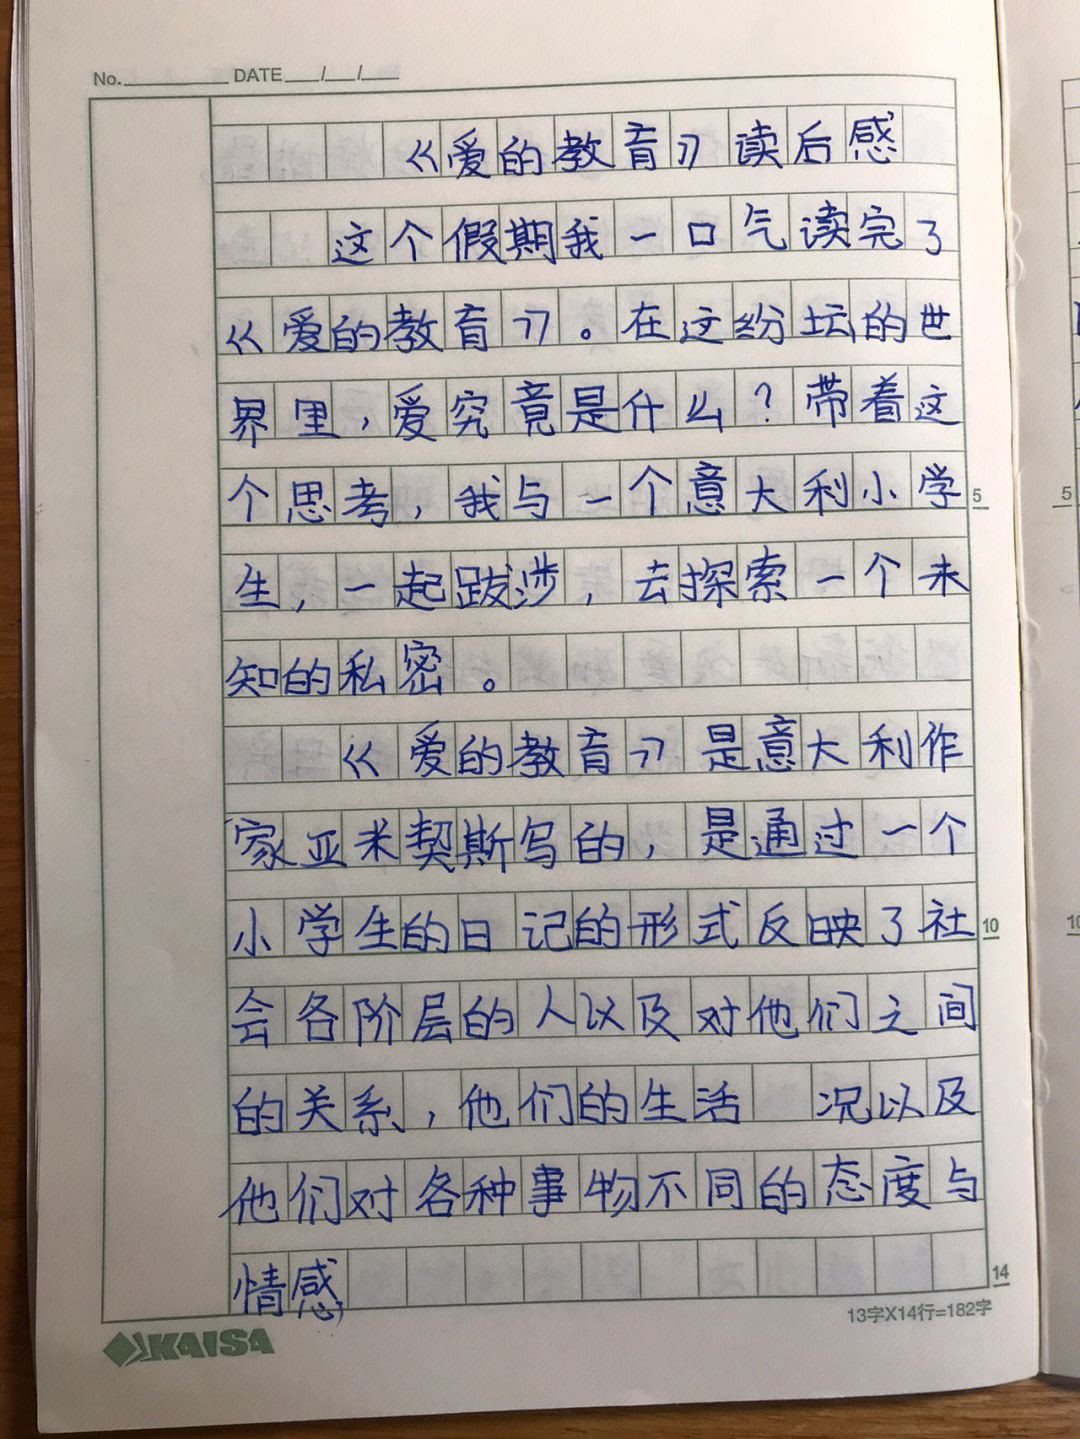 No. DATE / /
《爱的教育》读后感
这个假期我一口气读完了
《爱的教育》。在这纷坛的世
界里，爱究竟是什么？带着这
个思考，我与一个意大利小学
生，一起跋涉，去探索一个未
知的私密。
《爱的教育》是意大利作
家亚米契斯写的，是通过一个
小学生的日记的形式反映了社
会各阶层的人以及对他们之间
的关系，他们的生活 况以及
他们对各种事物不同的态度与
情感，
5
10
14
13字X14行=182字
KAISA
5
10